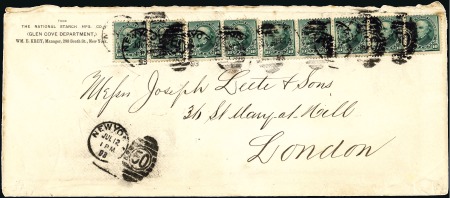 FROM
THE NATIONAL STARCH MFG. CO.
(GLEN COVE DEPARTMENT,)
WM. E. Manager, 29 South St., New
Messrs Joseph Leete & Sons
36 St Mary-at-Hill
London
NEW YO
JUL 12
1 PM